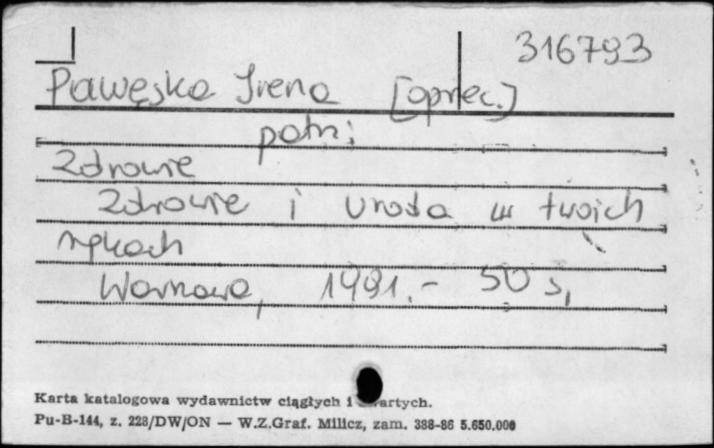 316793
Pawęska Irena [oprac.]
patrz
Zdrowie
Zdrowie i uroda w twoich
rękach
Warszawa, 1991.- 50 s,
Karta katalogowa wydawnictw ciągłych i zwartych.
Pu-B-144, z. 228/DW/ON — W.Z.Graf. Milicz, zam. 388-86 5.650.000